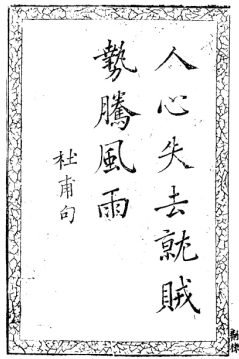 人心失去就賊
勢騰風雨
杜甫句